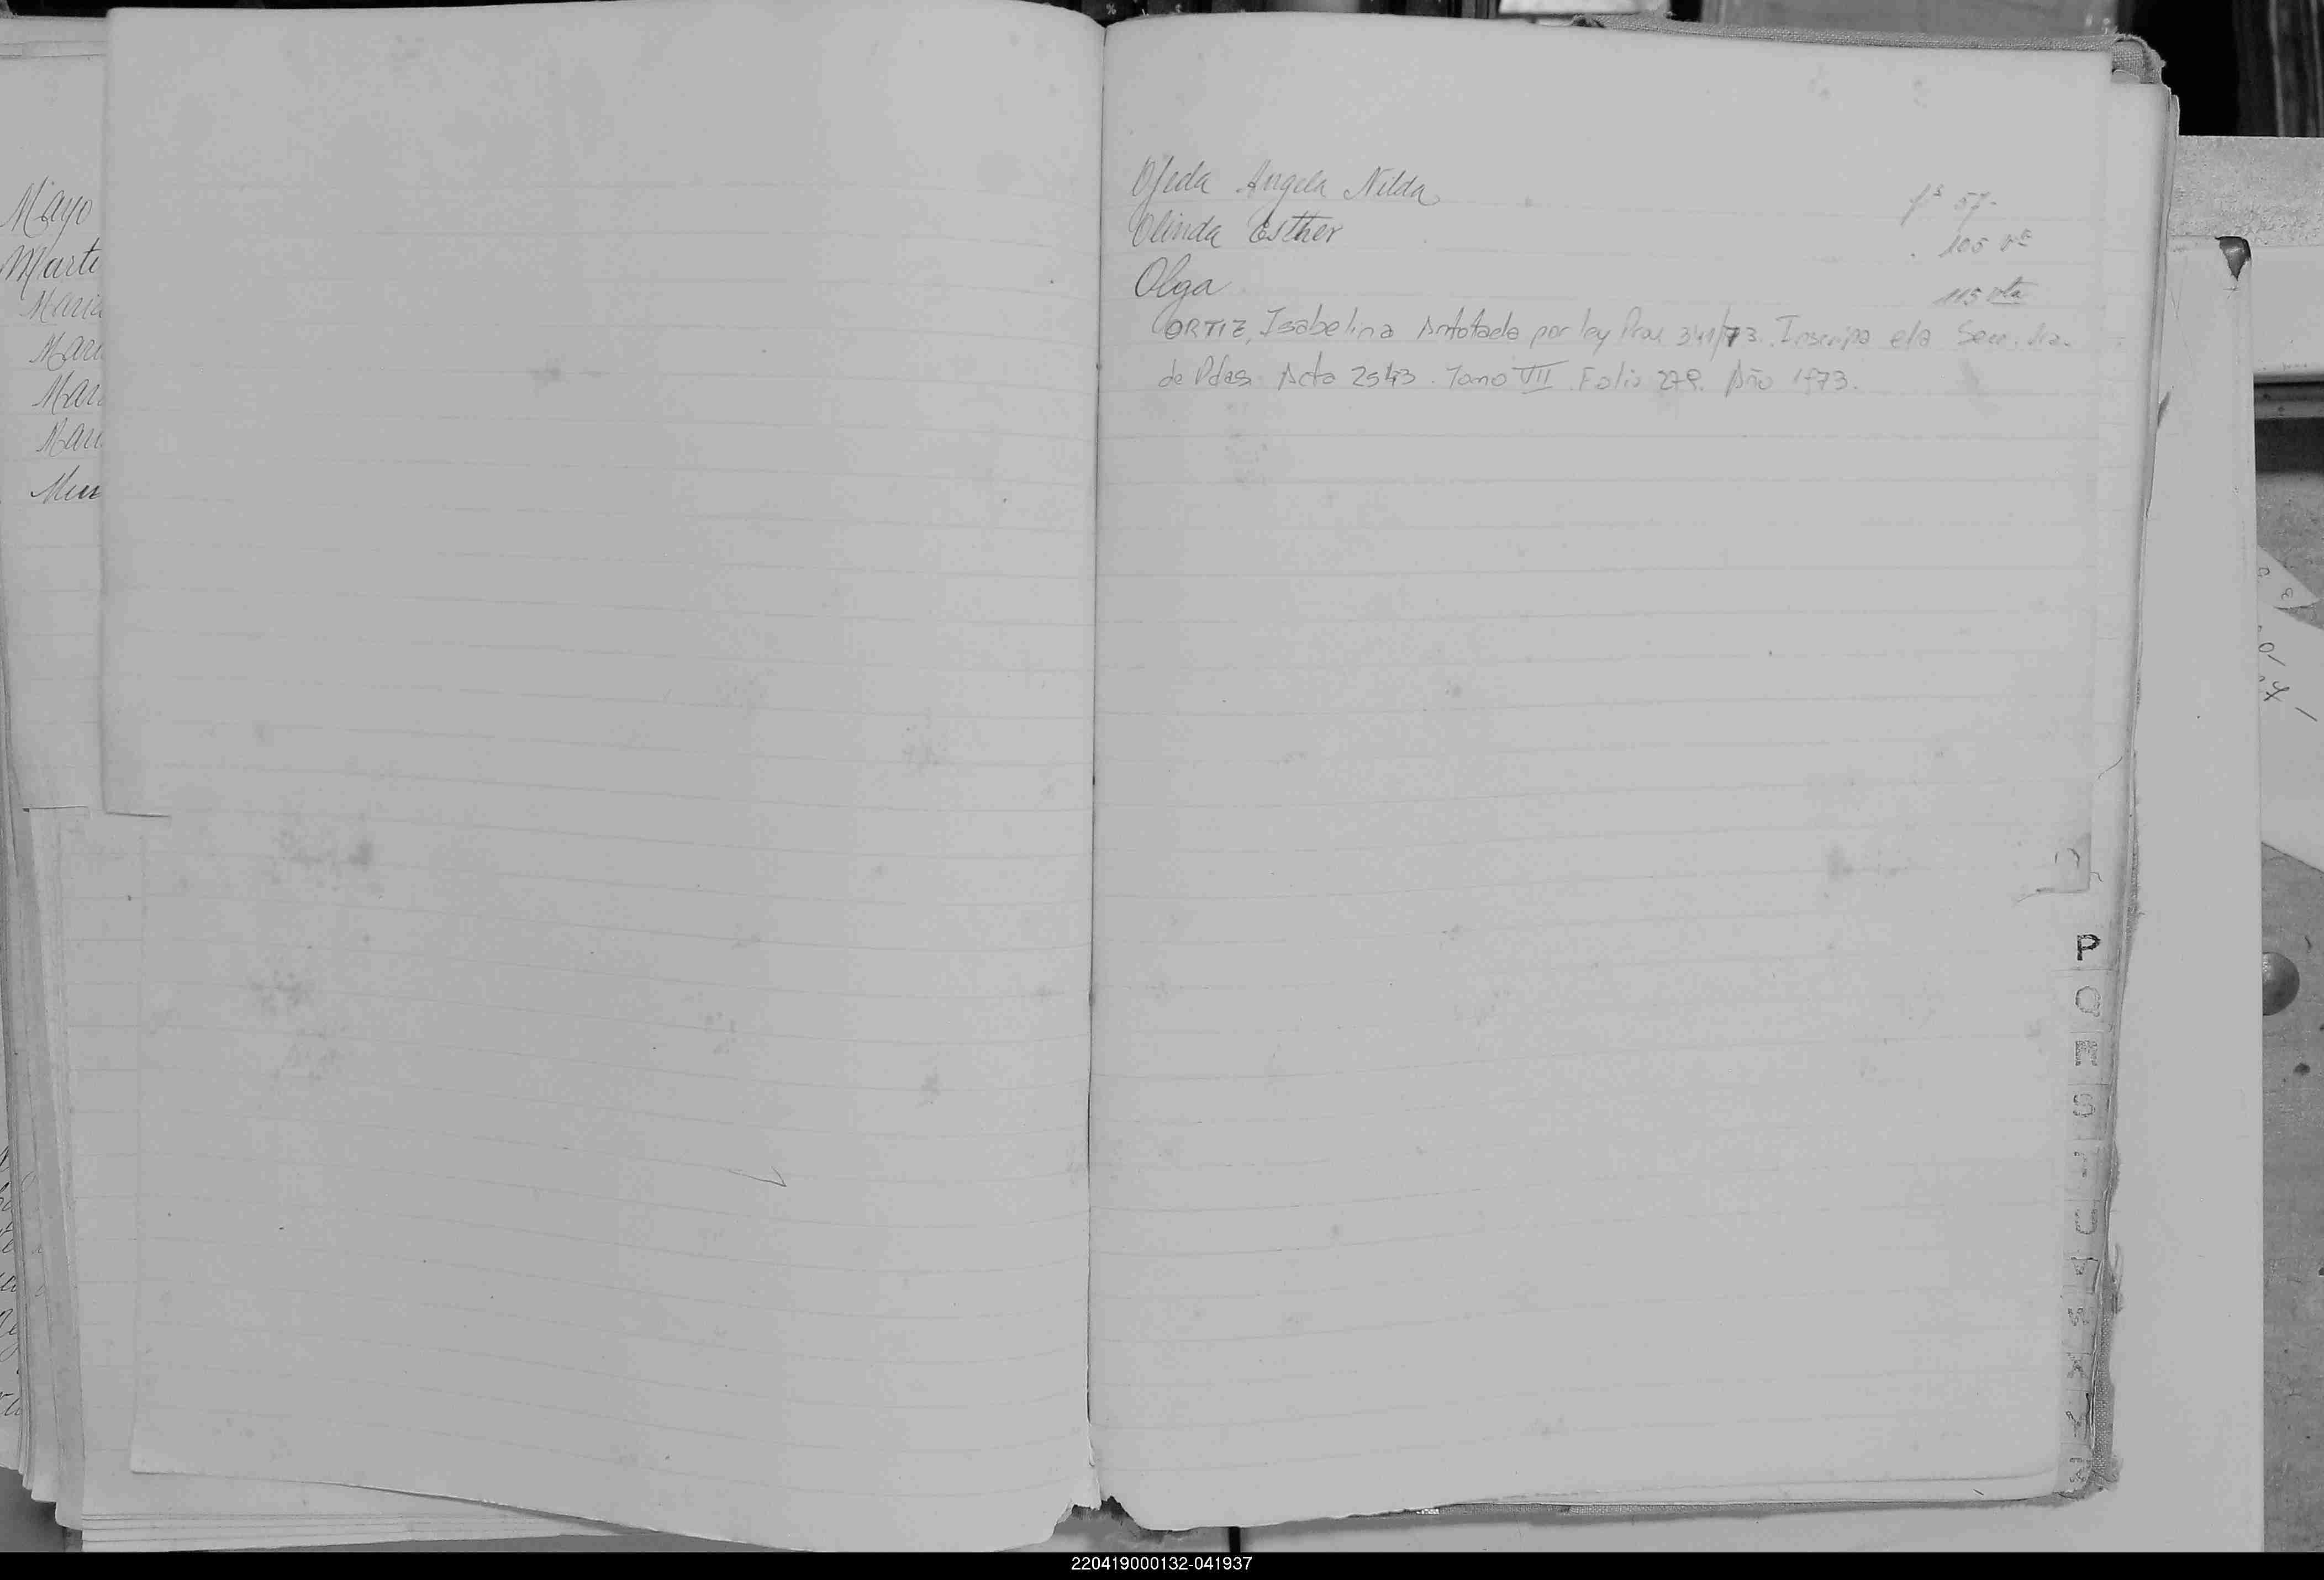 Mayo
Marti
Maria
Mari
Mari
Mari
Ojeda Angela Nilda fs 57-
Olinda Esther 105 vta
Olga 115 vta
ORTIZ, Isabelina Anotada por ley 341/73. Inscripa
de Pdas. Acta 2543. Tomo VII. Folio 278. Año 1973.
P
Q
R
S
T
U
220419000132-041937